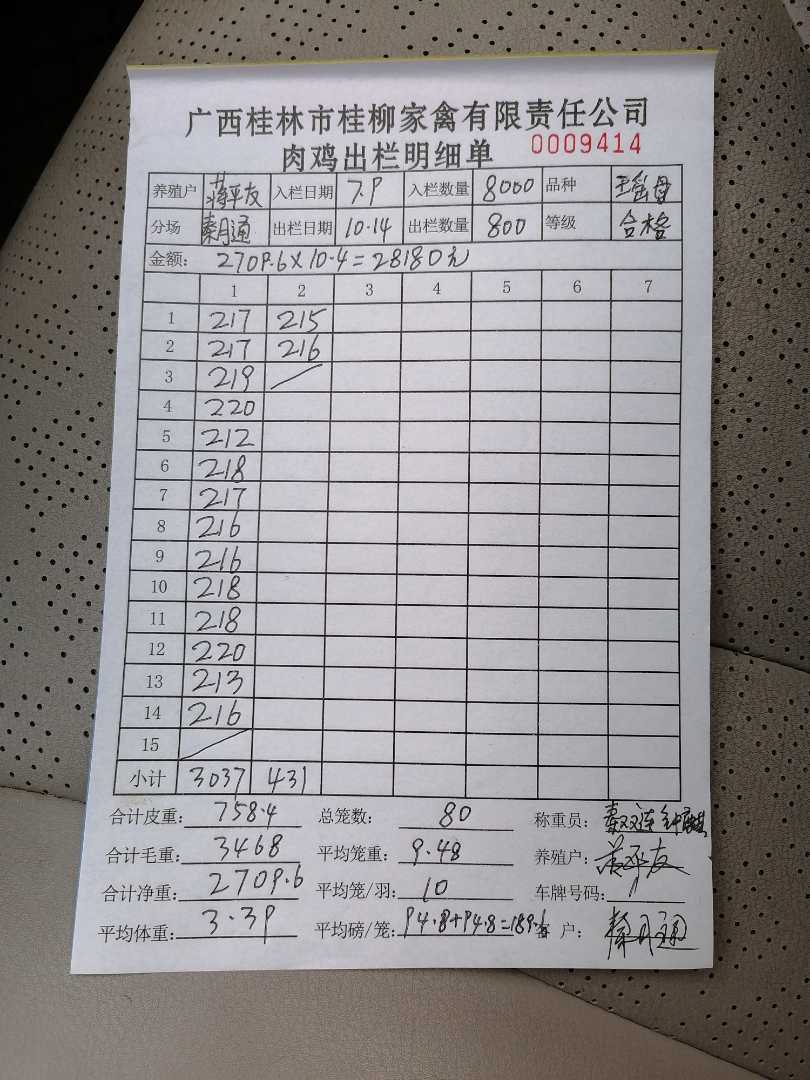 广西桂林市桂柳家禽有限责任公司
肉鸡出栏明细单 0009414
养殖户 蒋平友 入栏日期 7.9 入栏数量 8000 品种 瑶母
分场 秦月通 出栏日期 10.14 出栏数量 800 等级 合格
金额: 2709.6×10.4=28180元
1 2 3 4 5 6 7
1 217 215
2 217 216
3 219
4 220
5 212
6 218
7 217
8 216
9 216
10 218
11 218
12 220
13 213
14 216
15
小计 3037 431
合计皮重: 758.4 总笼数: 80 称重员: 秦双连
合计毛重: 3468 平均笼重: 9.48 养殖户: 蒋平友
合计净重: 2709.6 平均笼/羽: 10 车牌号码:
平均体重: 3.39 平均磅/笼: 94.8+94.8=189.6 客 户: 秦月通